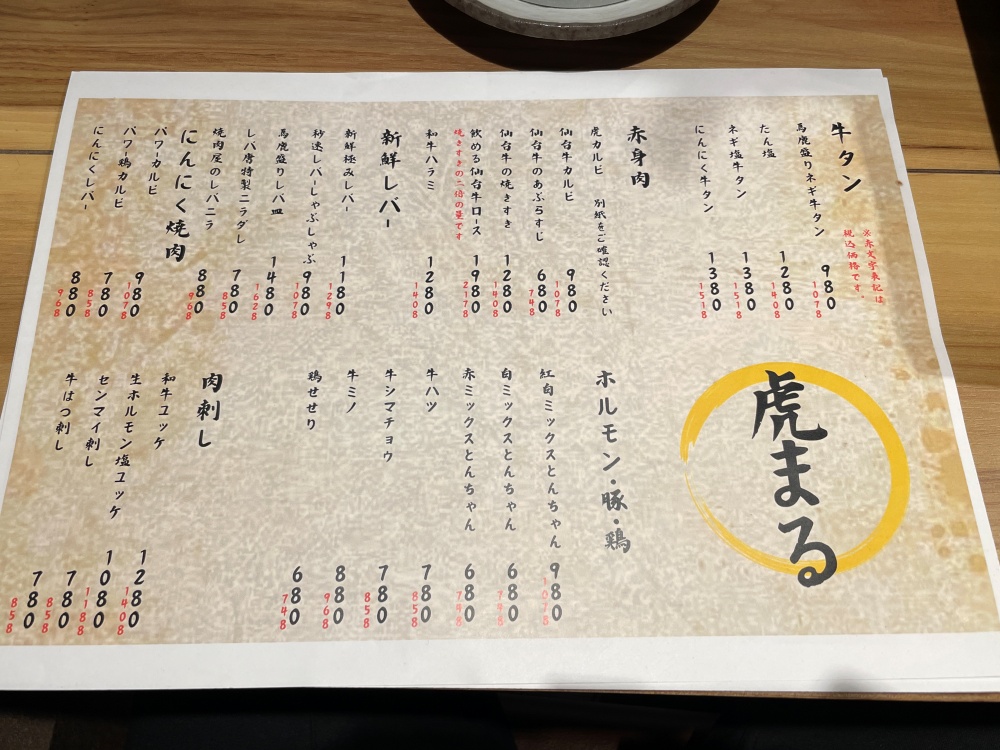 牛タン
※赤文字表記は
税込価格です。
馬鹿盛りネギ牛タン 980 1078
たん塩 1280 1408
ネギ塩牛タン 1380 1518
にんにく牛タン 1380 1518
赤身肉
虎カルビ 別紙をご確認ください
仙台牛カルビ 980 1078
仙台牛のあぶらすじ 680 748
仙台牛の焼きすき 1280 1408
飲める仙台牛ロース 1980 2178
焼きすきの二倍の量です
和牛ハラミ 1280 1408
新鮮レバー
新鮮極みレバー 1180 1298
秒速レバーしゃぶしゃぶ 980 1078
馬鹿盛りレバ皿 1480 1628
レバ唐特製ニラダレ 780 858
焼肉屋のレバニラ 880 968
にんにく焼肉
パワーカルビ 980 1078
パワー鶏カルビ 780 858
にんにくレバー 880 968
虎まる
ホルモン・豚・鶏
紅白ミックスとんちゃん 980 1078
白ミックスとんちゃん 680 748
赤ミックスとんちゃん 680 748
牛ハツ 780 858
牛シマチョウ 780 858
牛ミノ 880 968
鶏せせり 680 748
肉刺し
和牛ユッケ 1280 1408
生ホルモン塩ユッケ 1080 1188
センマイ刺し 780 858
牛はつ刺し 780 858